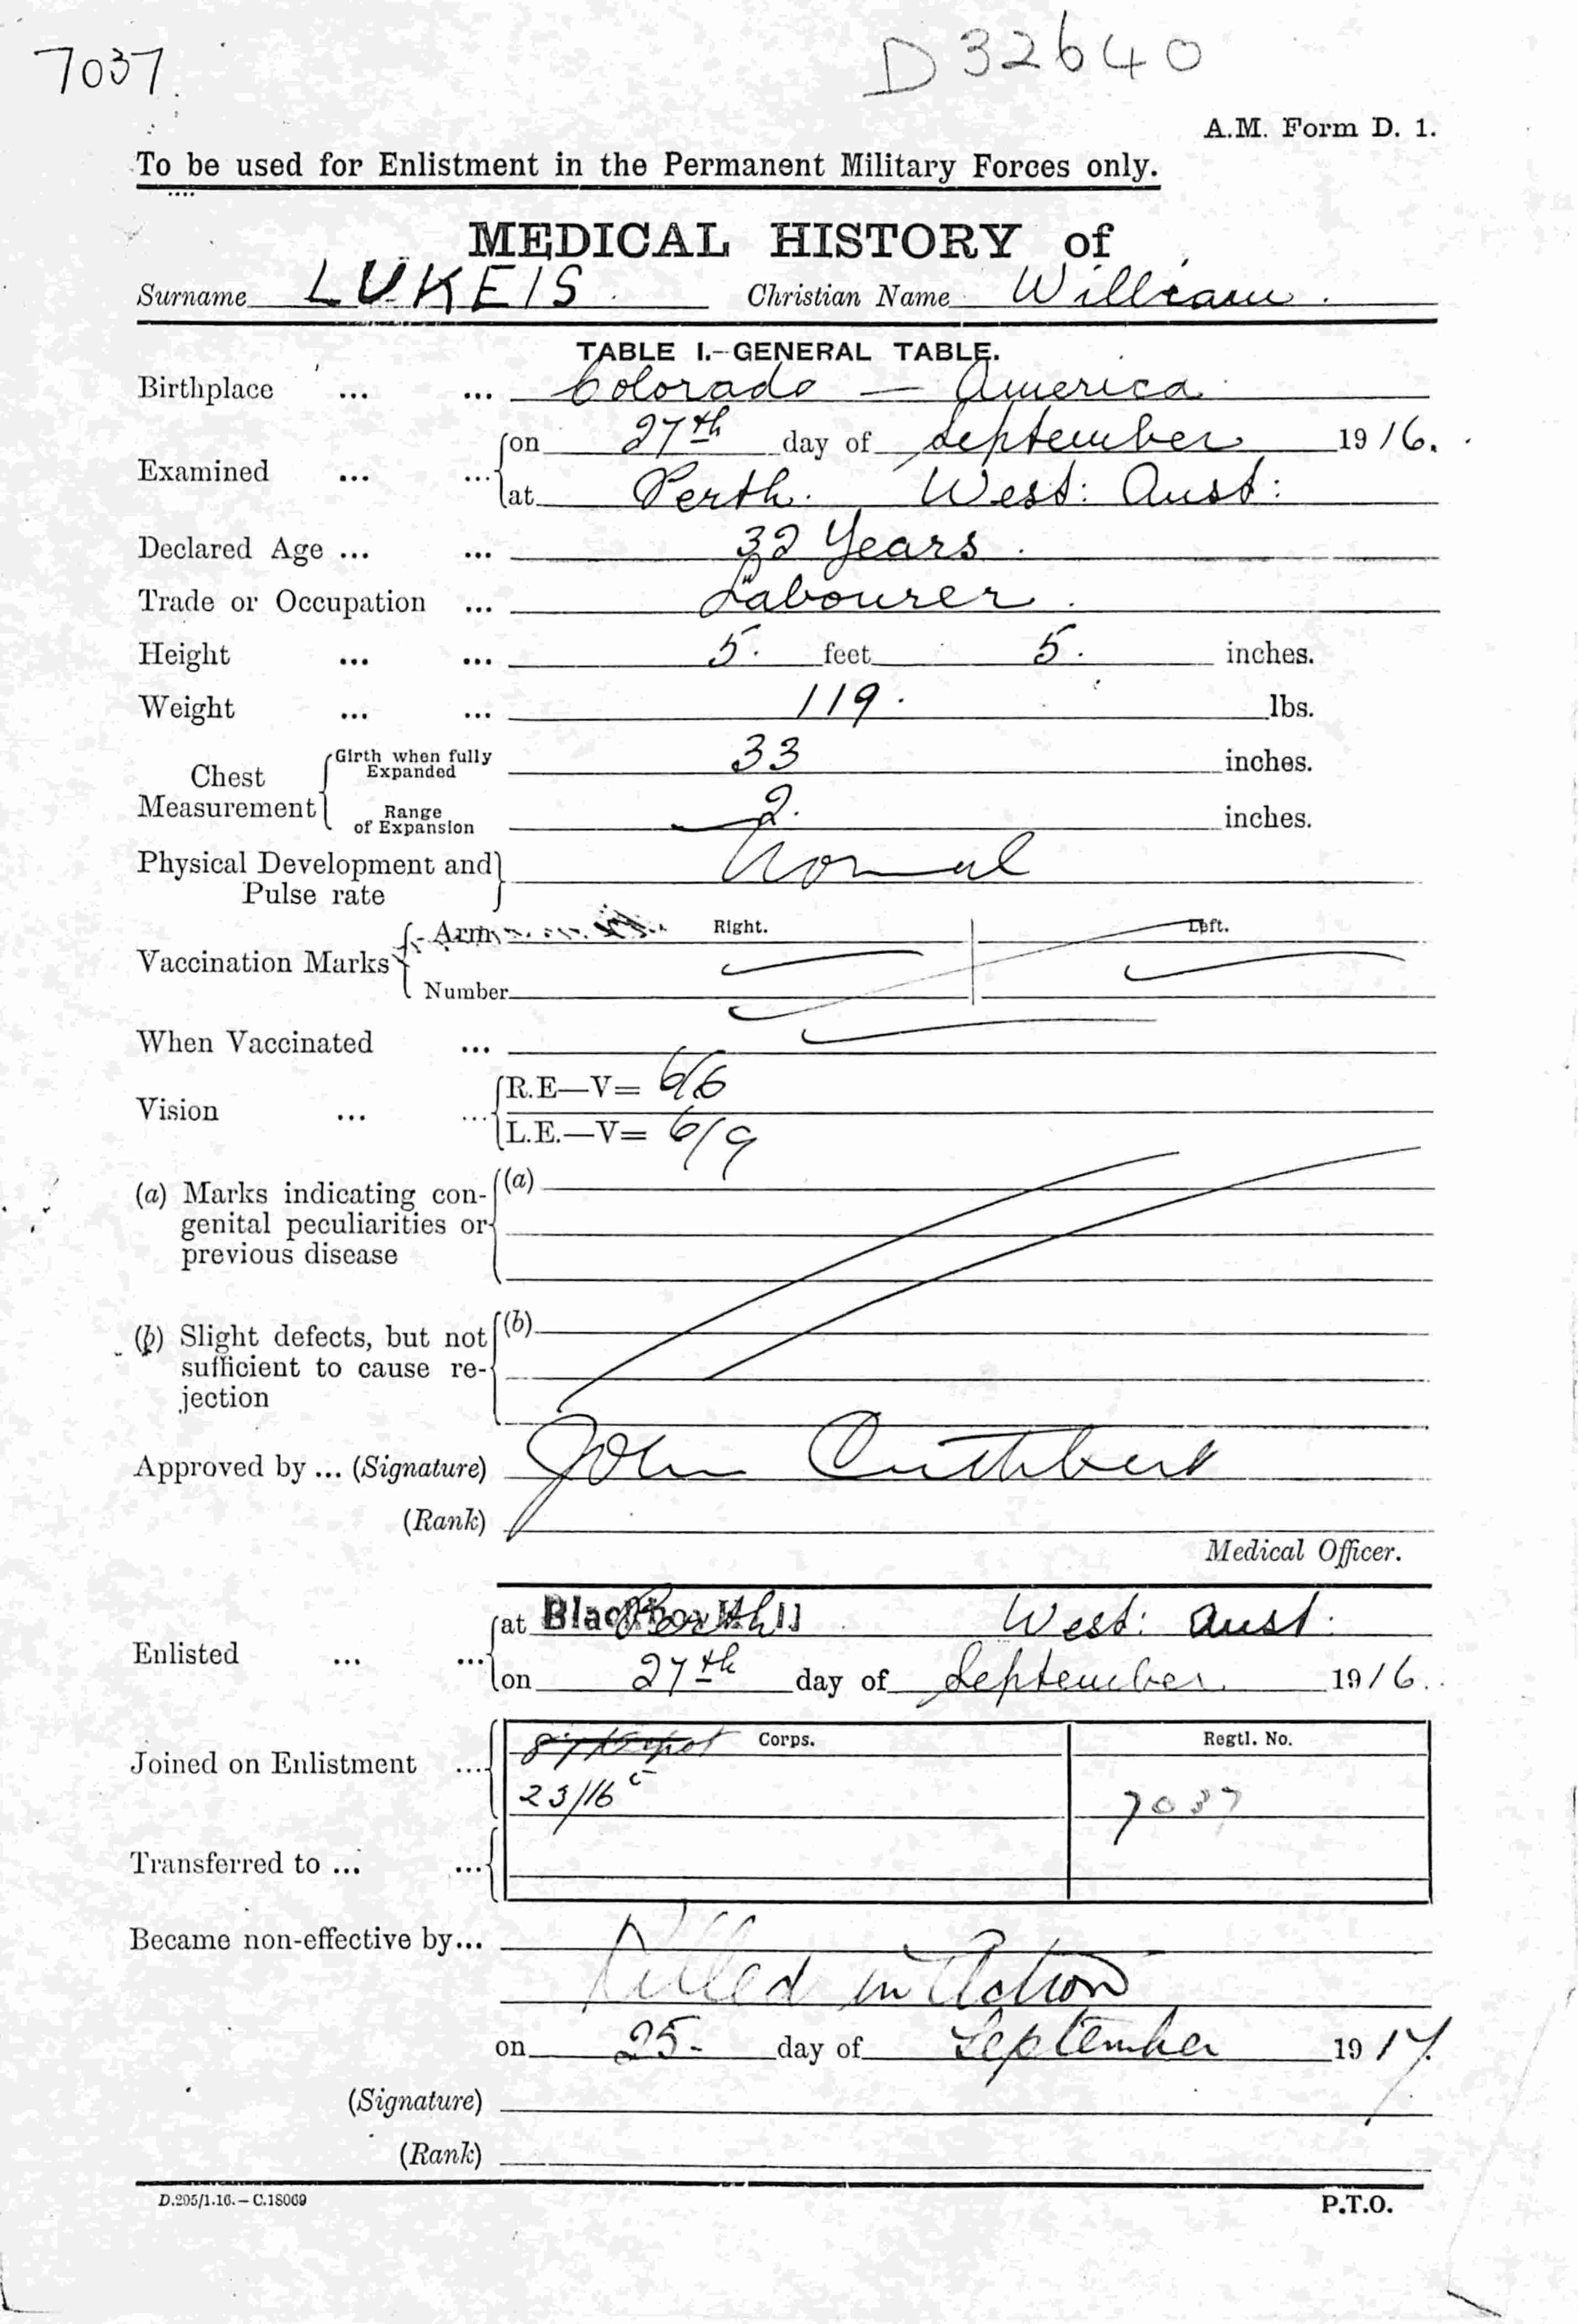 7037.
D 32640
A.M. Form D. 1.
To be used for Enlistment in the Permanent Military Forces only.
MEDICAL HISTORY of
Surname LUKEIS. Christian Name William.
TABLE I.--GENERAL TABLE.
Birthplace ... ... Colorado — America.
Examined ... ... on 27th day of September 1916.
at Perth. West: Aust:
Declared Age ... ... 32 Years.
Trade or Occupation ... Labourer.
Height ... ... 5. feet 5. inches.
Weight ... ... 119. lbs.
Chest Measurement Girth when fully Expanded 33 inches.
Range of Expansion 2. inches.
Physical Development and Pulse rate Normal
Vaccination Marks Arm Right. Left.
Number
When Vaccinated ...
Vision ... ... R.E—V= 6/6
L.E.—V= 6/9
(a) Marks indicating con- (a)
genital peculiarities or
previous disease
(b) Slight defects, but not (b)
sufficient to cause re-
jection
Approved by ... (Signature) John Cuthbert
(Rank)
Medical Officer.
Enlisted ... ... at Perth West: Aust.
on 27th day of September 1916.
Corps. Regtl. No.
Joined on Enlistment ... 23/16 7037
Transferred to ... ...
Became non-effective by...
Killed in Action
on 25- day of September 1917.
(Signature)
(Rank)
D.205/1.16.—C.18069
P.T.O.